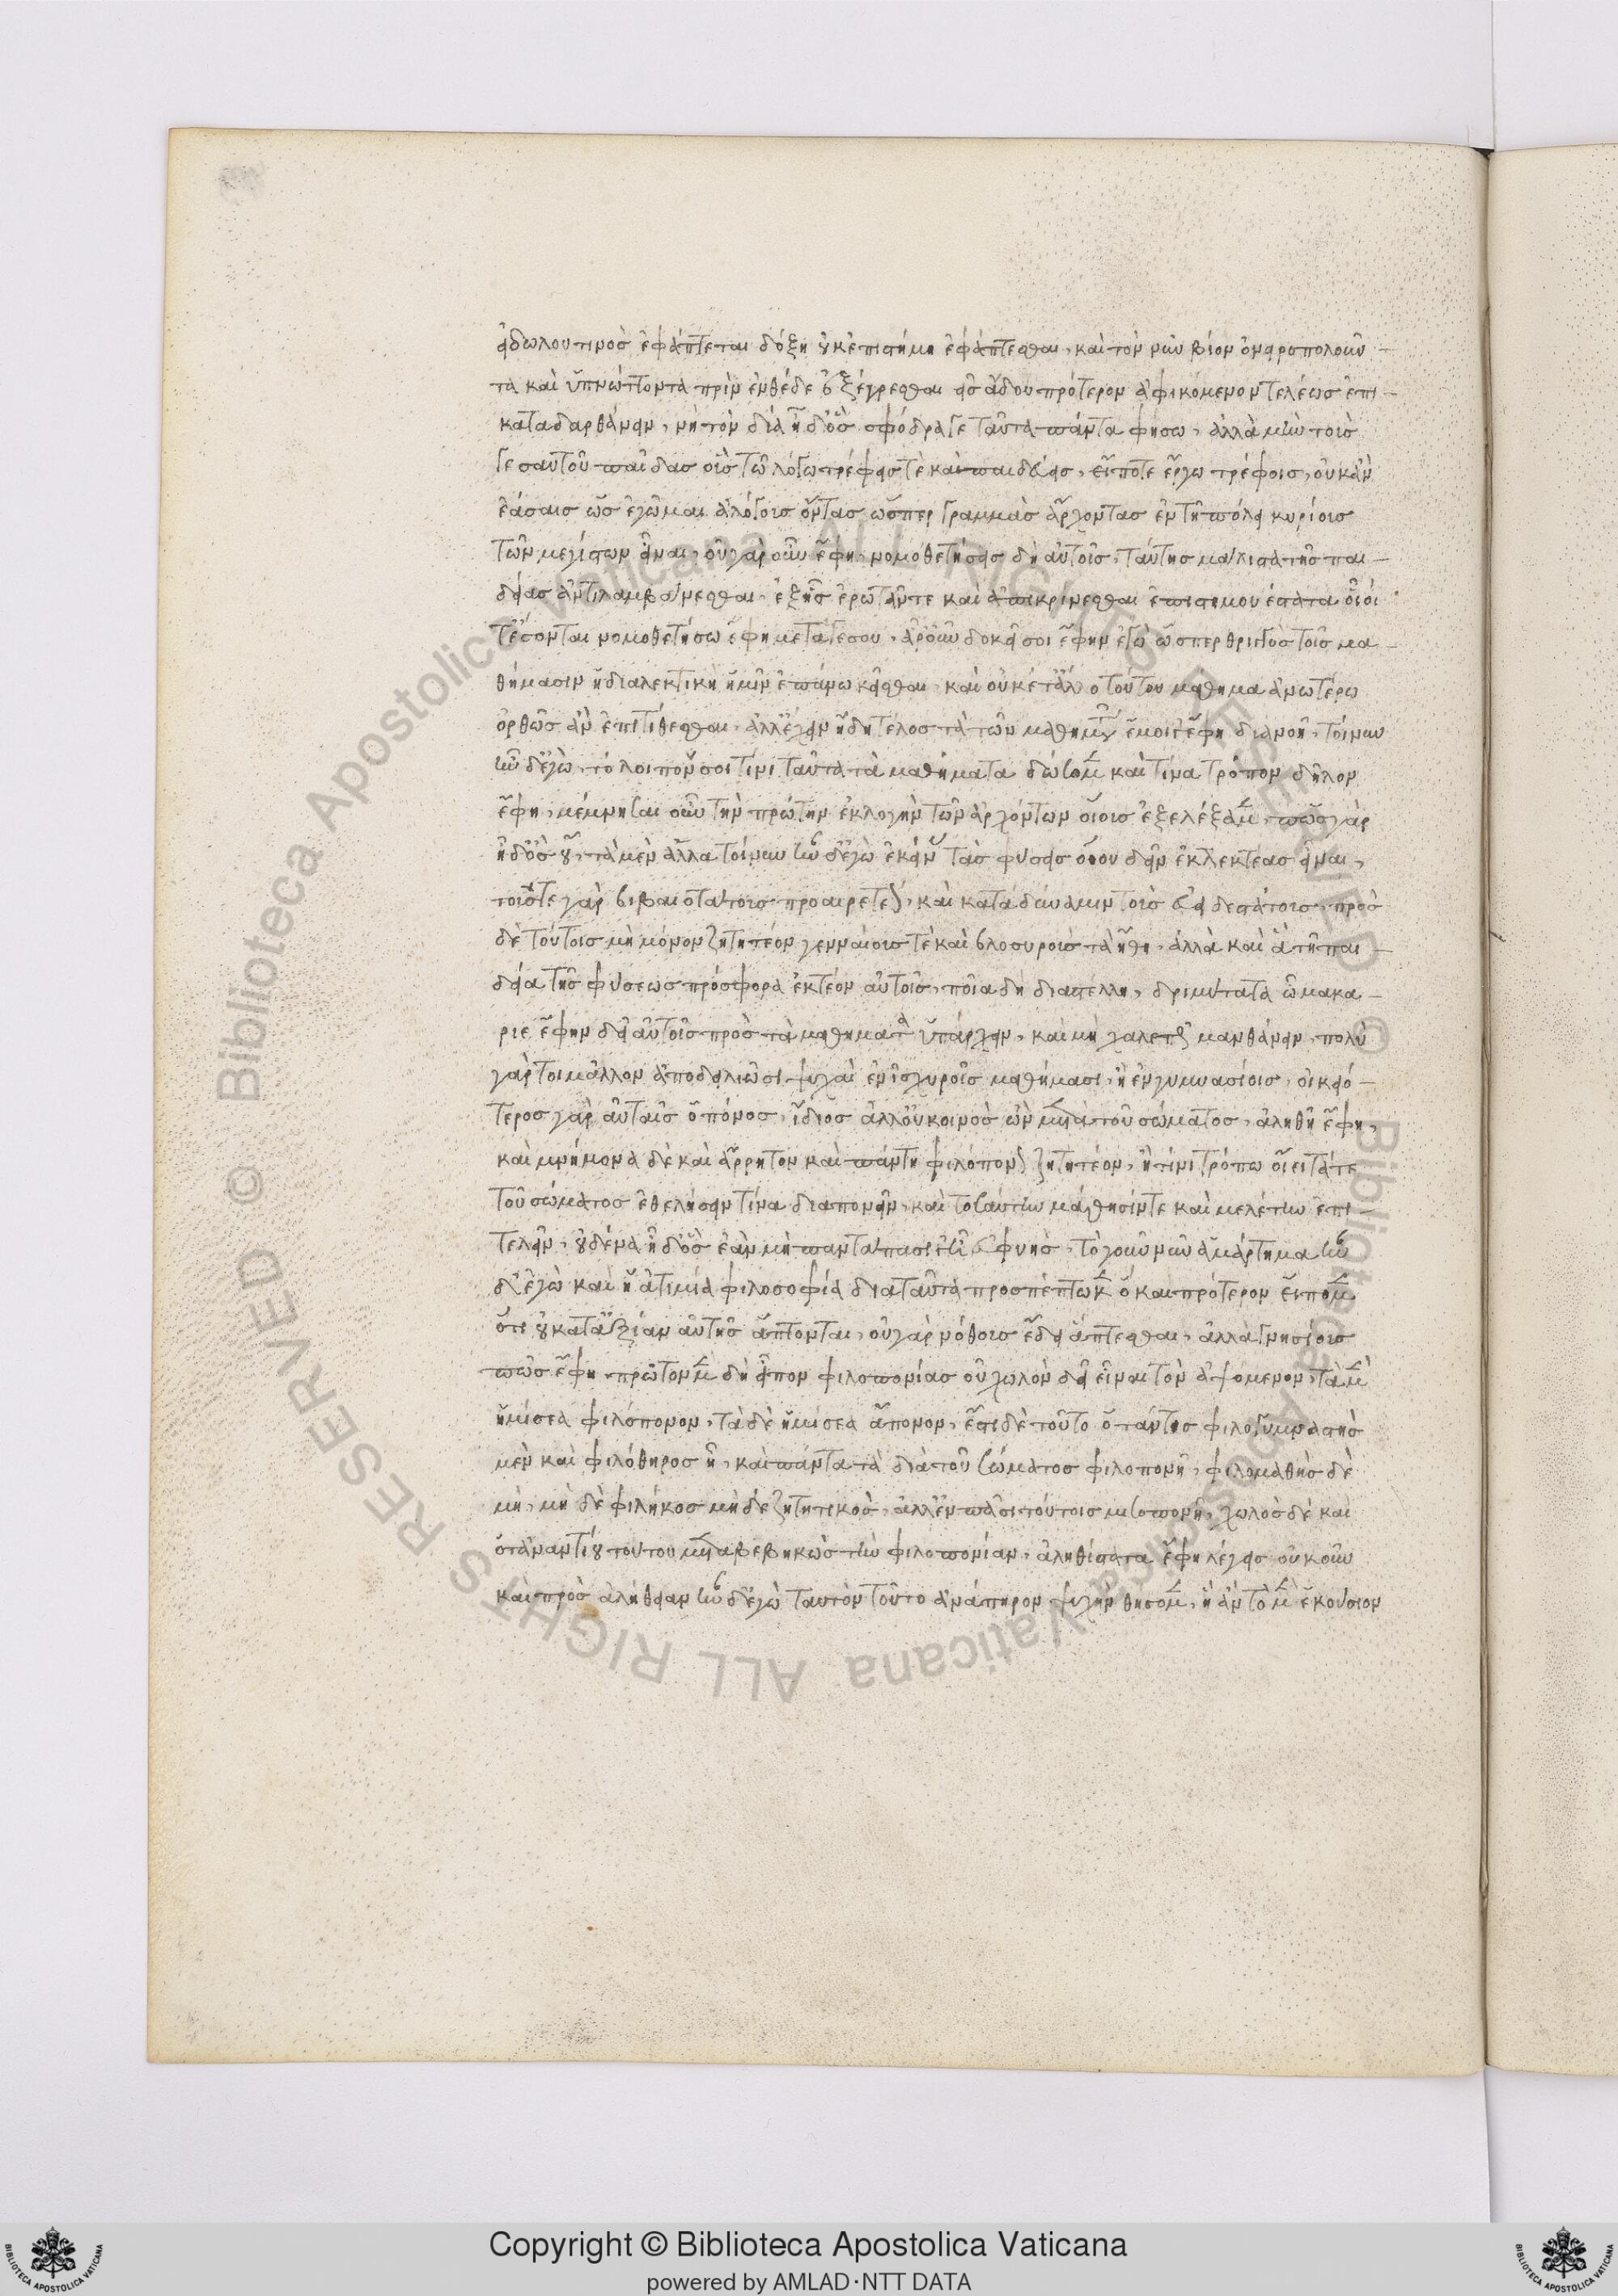 εἰδώλου τινὸς ἐφάπτεται δόξη οὐκ ἐπιστήμη ἐφάπτεσθαι, καὶ τὸν νῦν βίον ὀνειροπολοῦν-
τα καὶ ὑπνώττοντα πρὶν ἐνθάδε ἐξέγρεσθαι εἰς ἅδου πρότερον ἀφικόμενον τελέως ἐπι-
καταδαρθάνειν, νὴ τὸν δία ἦ δ' ὃς σφόδρα γε ταῦτα πάντα φήσω, ἀλλὰ μὴν τοὺς
γε σαυτοῦ παῖδας οὓς τῶ λόγω τρέφεις τὲ καὶ παιδεύεις, εἴ ποτε ἔργω τρέφοις, οὐκ ἂν
ἐάσαις ὡς ἐγῶμαι ἀλόγους ὄντας ὥσπερ γραμμὰς ἄρχοντας ἐν τῆ πόλει κυρίους
τῶν μεγίστων εἶναι, οὐ γὰρ οὖν ἔφη, νομοθετήσεις δὴ αὐτοῖς, ταύτης μάλιστα τῆς παι-
δείας ἀντιλαμβάνεσθαι, ἐξ ἧς ἐρωτᾶν τε καὶ ἀποκρίνεσθαι ἐπιστημονέστατα οἷοί
τ' ἔσονται νομοθετήσω ἔφη μετά γε σου, ἆρ' οὖν δοκεῖ σοι ἔφην ἐγὼ ὥσπερ θριγγὸς τοῖς μα-
θήμασιν ἡ διαλεκτικὴ ἡμῖν ἐπάνω κεῖσθαι, καὶ οὐκέτ' ἄλλο τούτου μάθημα ἀνωτέρω
ὀρθῶς ἂν ἐπιτίθεσθαι, ἀλλ' ἔχειν ἤδη τέλος τὰ τῶν μαθημάτων ἔμοιγ' ἔφη διανομὴ, τοίνυν
ἦν δ' ἐγὼ, τὸ λοιπόν σοι τίσι ταῦτα τὰ μαθήματα δώσομεν καὶ τίνα τρόπον δῆλον
ἔφη, μέμνησαι οὖν τὴν πρώτην ἐκλογὴν τῶν ἀρχόντων οἵους ἐξελέξαμεν, πῶς γὰρ
ἦ δ' ὃς οὔ, τὰ μὲν ἄλλα τοίνυν ἦν δ' ἐγὼ ἐκείνας τὰς φύσεις οἴου δεῖν ἐκλεκτέας εἶναι,
τούς τε γὰρ βεβαιοτάτους προαιρετέον, καὶ κατὰ δύναμιν τοὺς εὐειδεστάτους, πρὸς
δὲ τούτοις μὴ μόνον ζητητέον γενναίους τὲ καὶ βλοσυροὺς τὰ ἤθη, ἀλλὰ καὶ ἃ τῆ παι-
δεία τῆς φύσεως πρόσφορα ἑκτέον αὐτοῖς, ποῖα δὴ διαστέλλη, δριμύτατα ὦ μακά-
ριε ἔφην δεῖ αὐτοῖς πρὸς τὰ μαθήματα ὑπάρχειν, καὶ μὴ χαλεπῶς μανθάνειν, πολὺ
γάρ τοι μᾶλλον ἀποδειλιῶσι ψυχαὶ ἐν ἰσχυροῖς μαθήμασι, ἢ ἐν γυμνασίοις, οἰκειό-
τερος γὰρ αὐταῖς ὁ πόνος, ἴδιος ἀλλ' οὐ κοινὸς ὢν μετὰ τοῦ σώματος, ἀληθῆ ἔφη,
καὶ μνήμονα δὲ καὶ ἄρρητον καὶ πάντη φιλόπονον ζητητέον, ἢ τίνι τρόπω οἴει τά τε
τοῦ σώματος ἐθελήσειν τίνα διαπονεῖν, καὶ τοσαύτην μάθησίν τε καὶ μελέτην ἐπι-
τελεῖν, οὐδένα ἦ δ' ὃς ἐὰν μὴ παντάπασί γ' ἦ εὐφυὴς, τὸ γοῦν νῦν ἁμάρτημα ἦν
δ' ἐγὼ καὶ ἡ ἀτιμία φιλοσοφία διὰ ταῦτα προσπέπτωκεν ὃ καὶ πρότερον εἴπομεν
ὅτι οὐ κατ' ἀξίαν αὐτῆς ἅπτονται, οὐ γὰρ νόθους ἔδει ἅπτεσθαι, ἀλλὰ γνησίους
πῶς ἔφη, πρῶτον μὲν δὴ εἶπον φιλοπονίας οὐ χωλὸν δεῖ εἶναι τὸν ἁψόμενον, τὰ μὲν
ἡμίσεα φιλόπονον, τὰ δὲ ἡμίσεα ἄπονον, ἔστι δὲ τοῦτο ὅταν τις φιλογυμναστὴς
μὲν καὶ φιλόθηρος ἦ, καὶ πάντα τὰ διὰ τοῦ σώματος φιλοπονῆ, φιλομαθὴς δὲ
μὴ, μὴ δὲ φιλήκοος μὴ δὲ ζητητικὸς, ἀλλ' ἐν πᾶσι τούτοις μισοπονῆ, χωλὸς δὲ καὶ
ὁ τἀναντία τούτου μεταβεβηκὼς τὴν φιλοπονίαν, ἀληθέστατα ἔφη λέγεις οὐκοῦν
καὶ πρὸς ἀλήθειαν ἦν δ' ἐγὼ ταυτὸν τοῦτο ἀνάπηρον ψυχὴν θήσομεν, ἣ ἂν τὸ μὲν ἑκούσιον
Copyright © Biblioteca Apostolica Vaticana
powered by AMLAD·NTT DATA